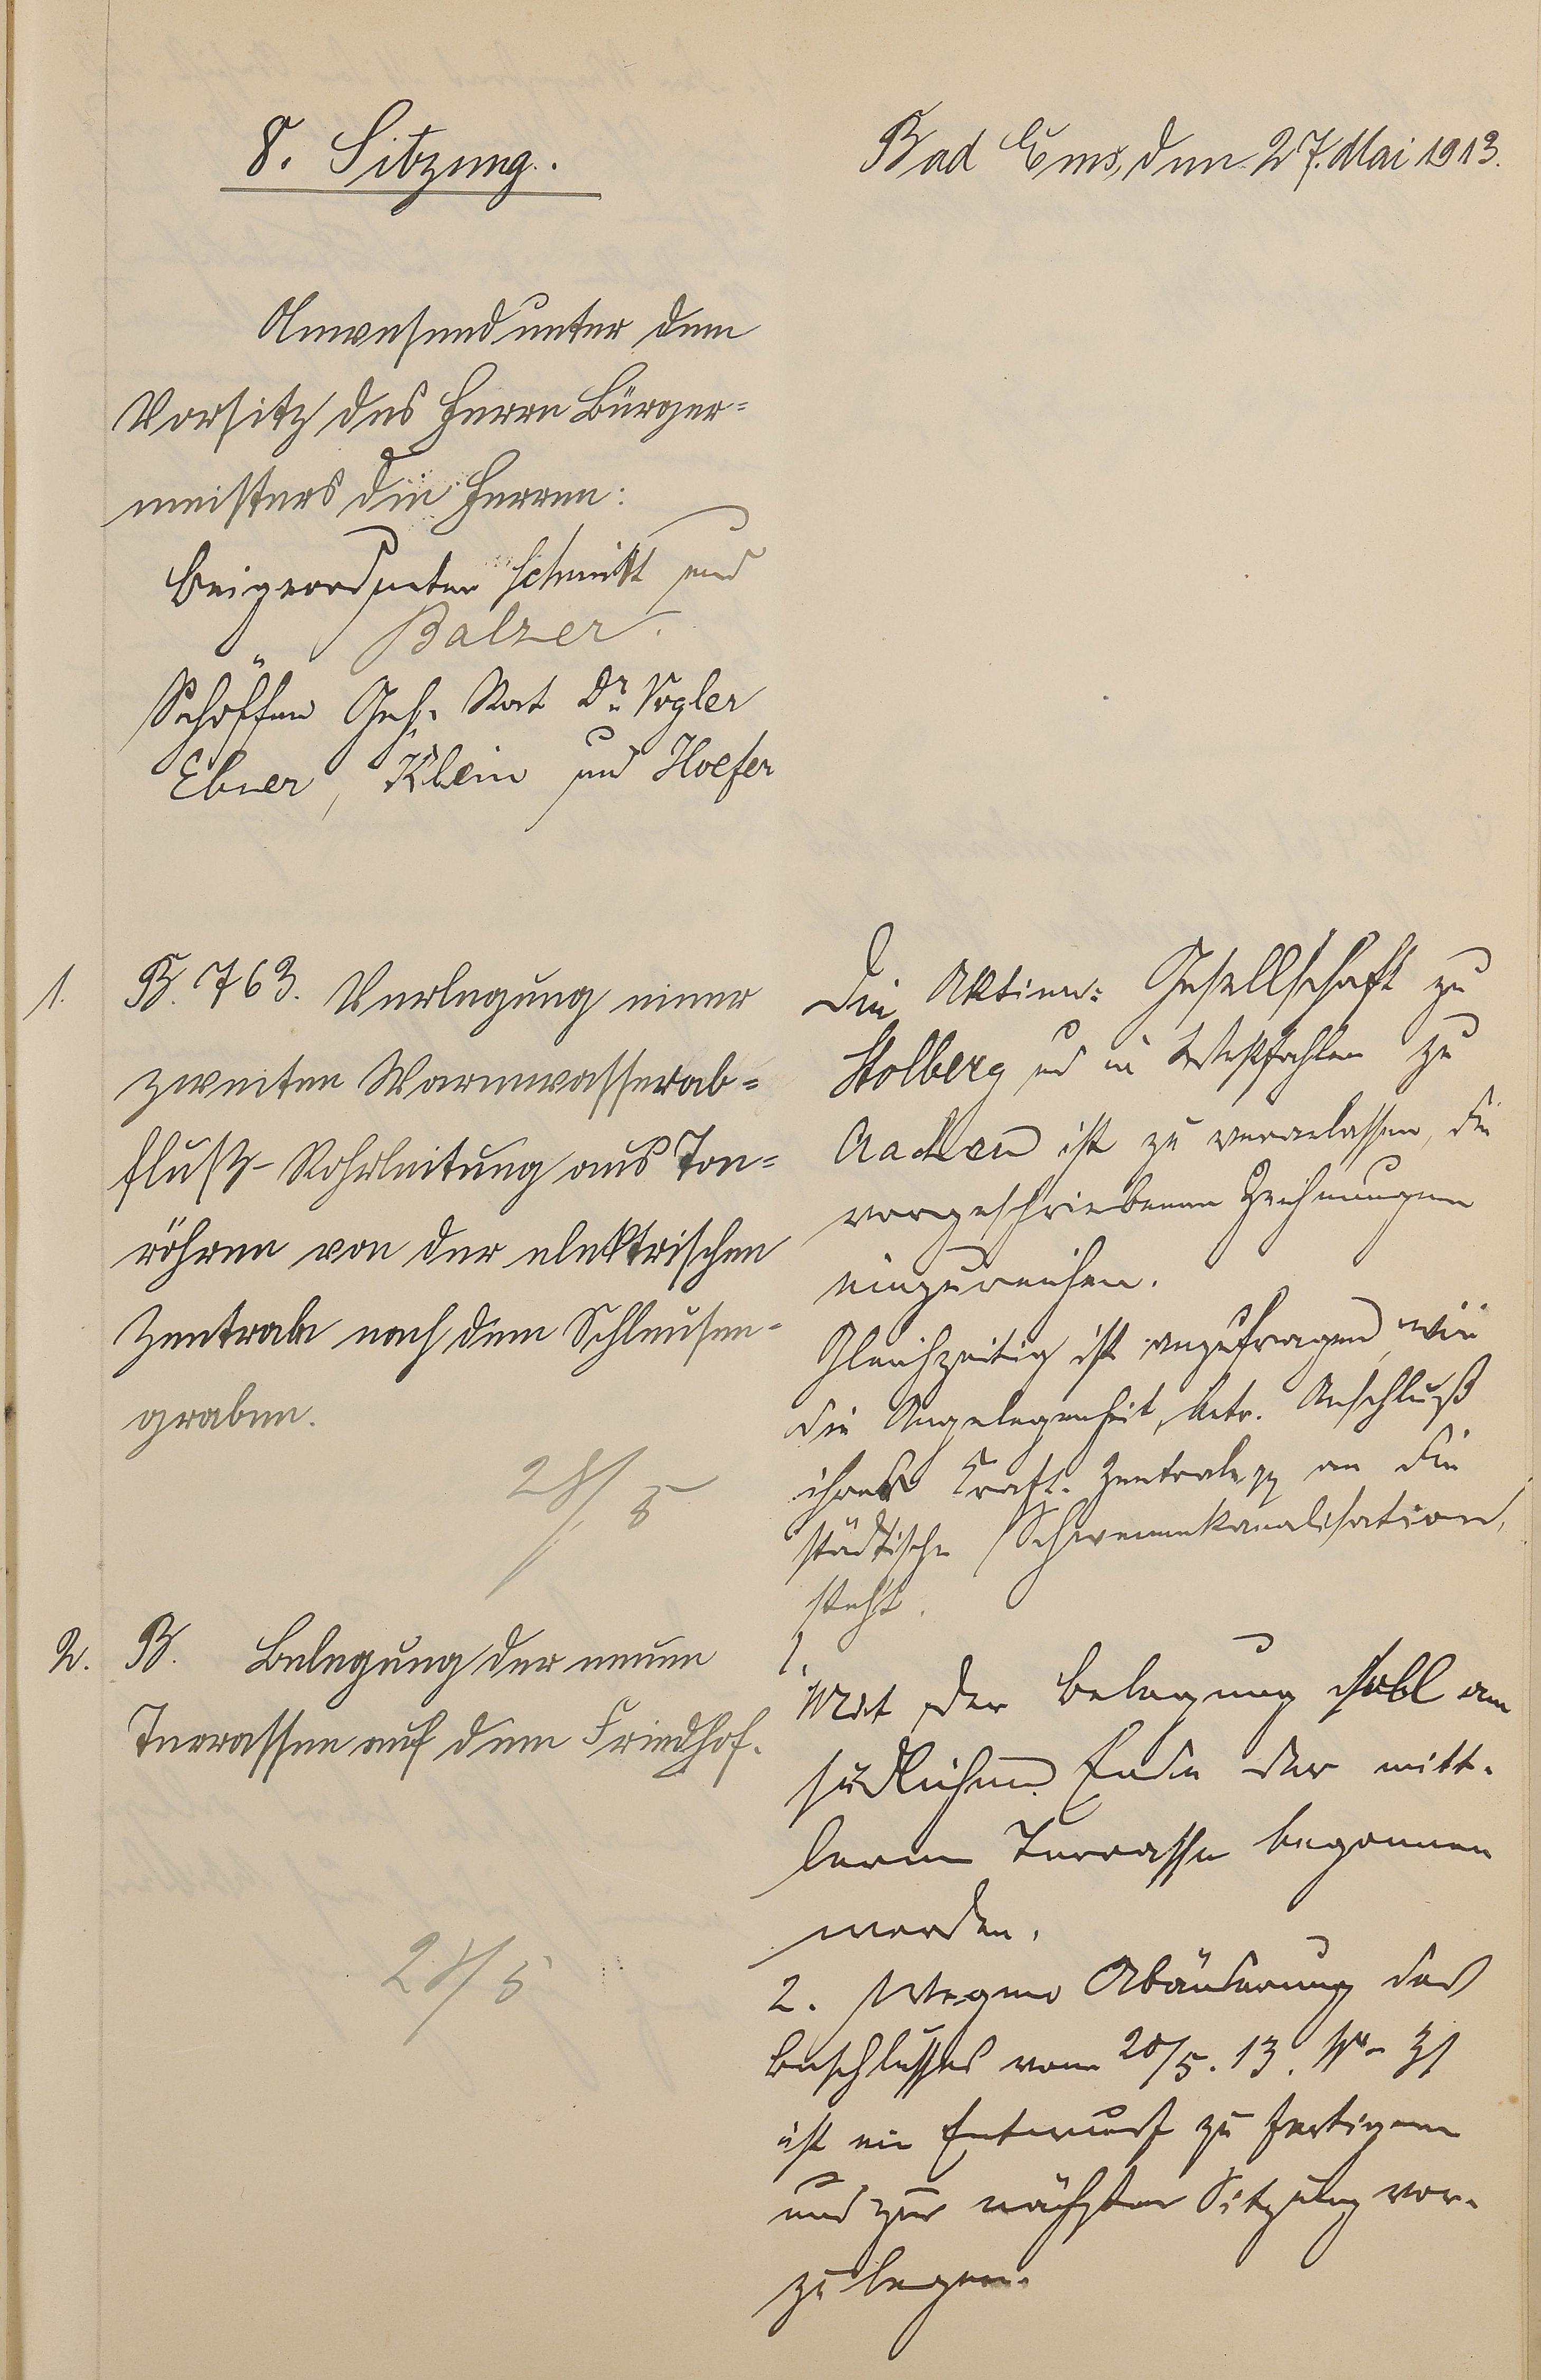 8. Sitzung.
Bad Ems, den 27. Mai 1913.
Anwesend unter dem
Vorsitz des Herrn Bürger=
meisters die Herren:
Beigeordneter Schmitt und
Balzer.
Schöffen Geh. Rat Dr. Vogler
Ebner, Klein und Hoefer
1. B. 763. Verlegung einer
zweiten Warmwasserab=
fluß-Rohrleitung aus Ton=
röhren von der elektrischen
Zentrale nach dem Schleusen-
graben.
28/5
Die Aktien=Gesellschaft zu
Stolberg und in Westfahlen zu
Aachen ist zu veranlassen, die
vorgeschriebenen Zeichnungen
einzureichen.
Gleichzeitig ist anzufragen, wie
die Angelegenheit, betr. Anschluß
ihrer Kraft-Zentrale pp an die
städtische Schwemmkanalisation,
steht.
2. B. Belegung der neuen
Terrassen auf dem Friedhof.
28/5
1.
Mit der Belegung soll am
südlichen Ende der mitt-
leren Terrasse begonnen
werden.
2. Wegen Abänderung des
Beschlusses vom 20/5. 13. No 31
ist ein Entwurf zu fertigen
und zur nächsten Sitzung vor-
zulegen.